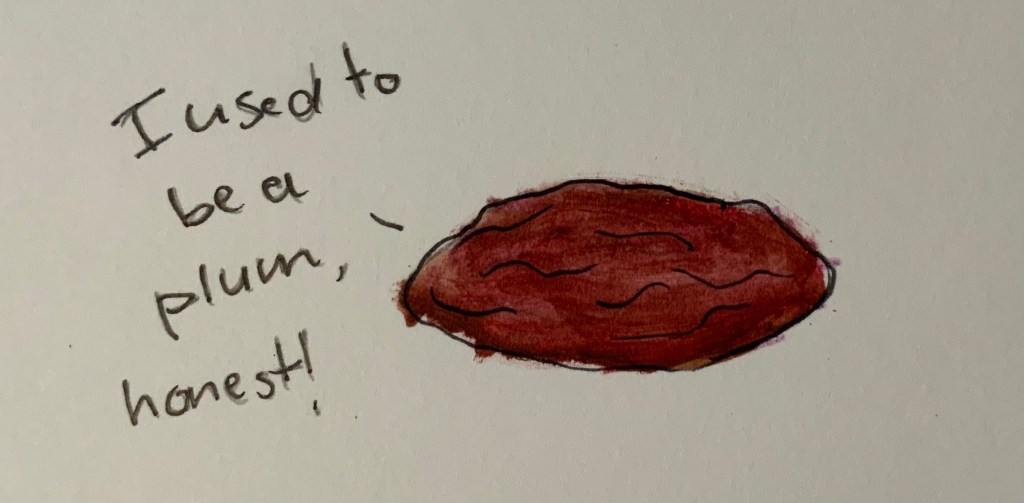 I used to
be a
plum,
honest!